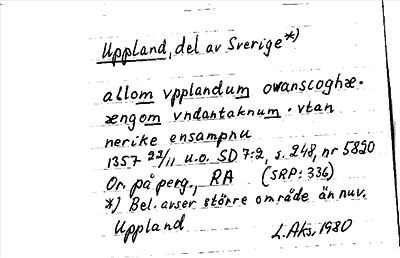 Uppland, del av Sverige*)
allom vpplandum owanscoghæ·
ængom vndantaknum · vtan
nerike ensampnu
1357 22/11 u.o. SD 7:2, s. 248, nr 5820
Or. på perg., RA (SRP: 336)
*) Bel. avser större område än nuv.
Uppland
L. Aks. 1980